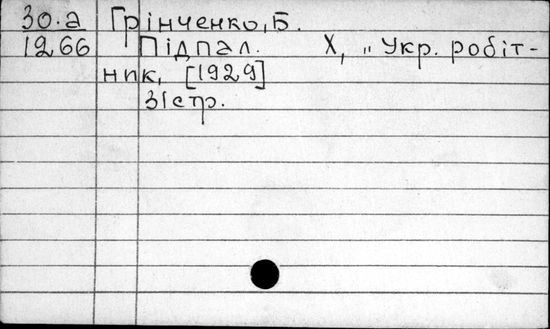 30.а Грінченко, Б.
1266 Підпал. Х, „Укр. робіт-
ник, [1929]
31 стр.